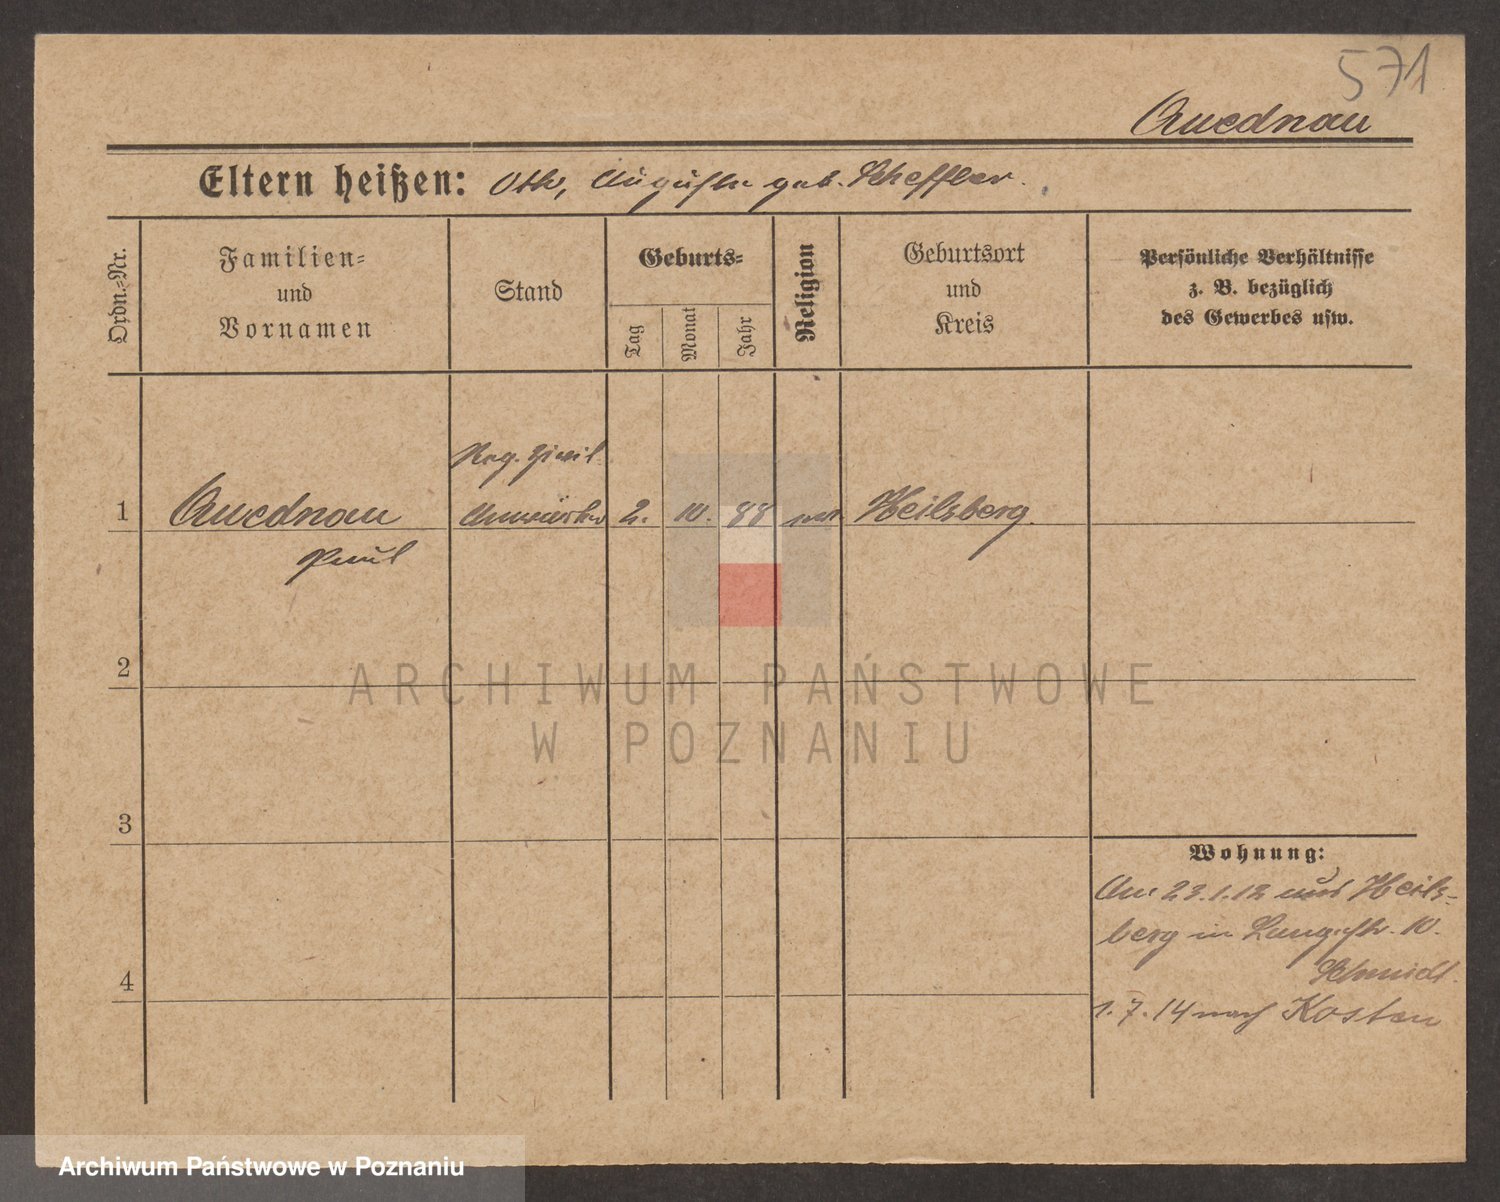 571
Quednau
Eltern heißen: Otto, Auguste geb. Scheffler.
Ordn.-Nr.
Familien- und Vornamen
Stand
Geburts-
Tag
Monat
Jahr
Religion
Geburtsort und Kreis
Persönliche Verhältnisse
z. B. bezüglich
des Gewerbes usw.
Reg. Zivil-
1 Quednau Anwärter 2. 10. 88 Heilsberg.
Paul
2
3
4
Wohnung:
Am 23.1.12 aus Heils-
berg in Langestr. 10.
Schmidt.
1.7.14 nach Kosten
ARCHIWUM PAŃSTWOWE
W POZNANIU
Archiwum Państwowe w Poznaniu